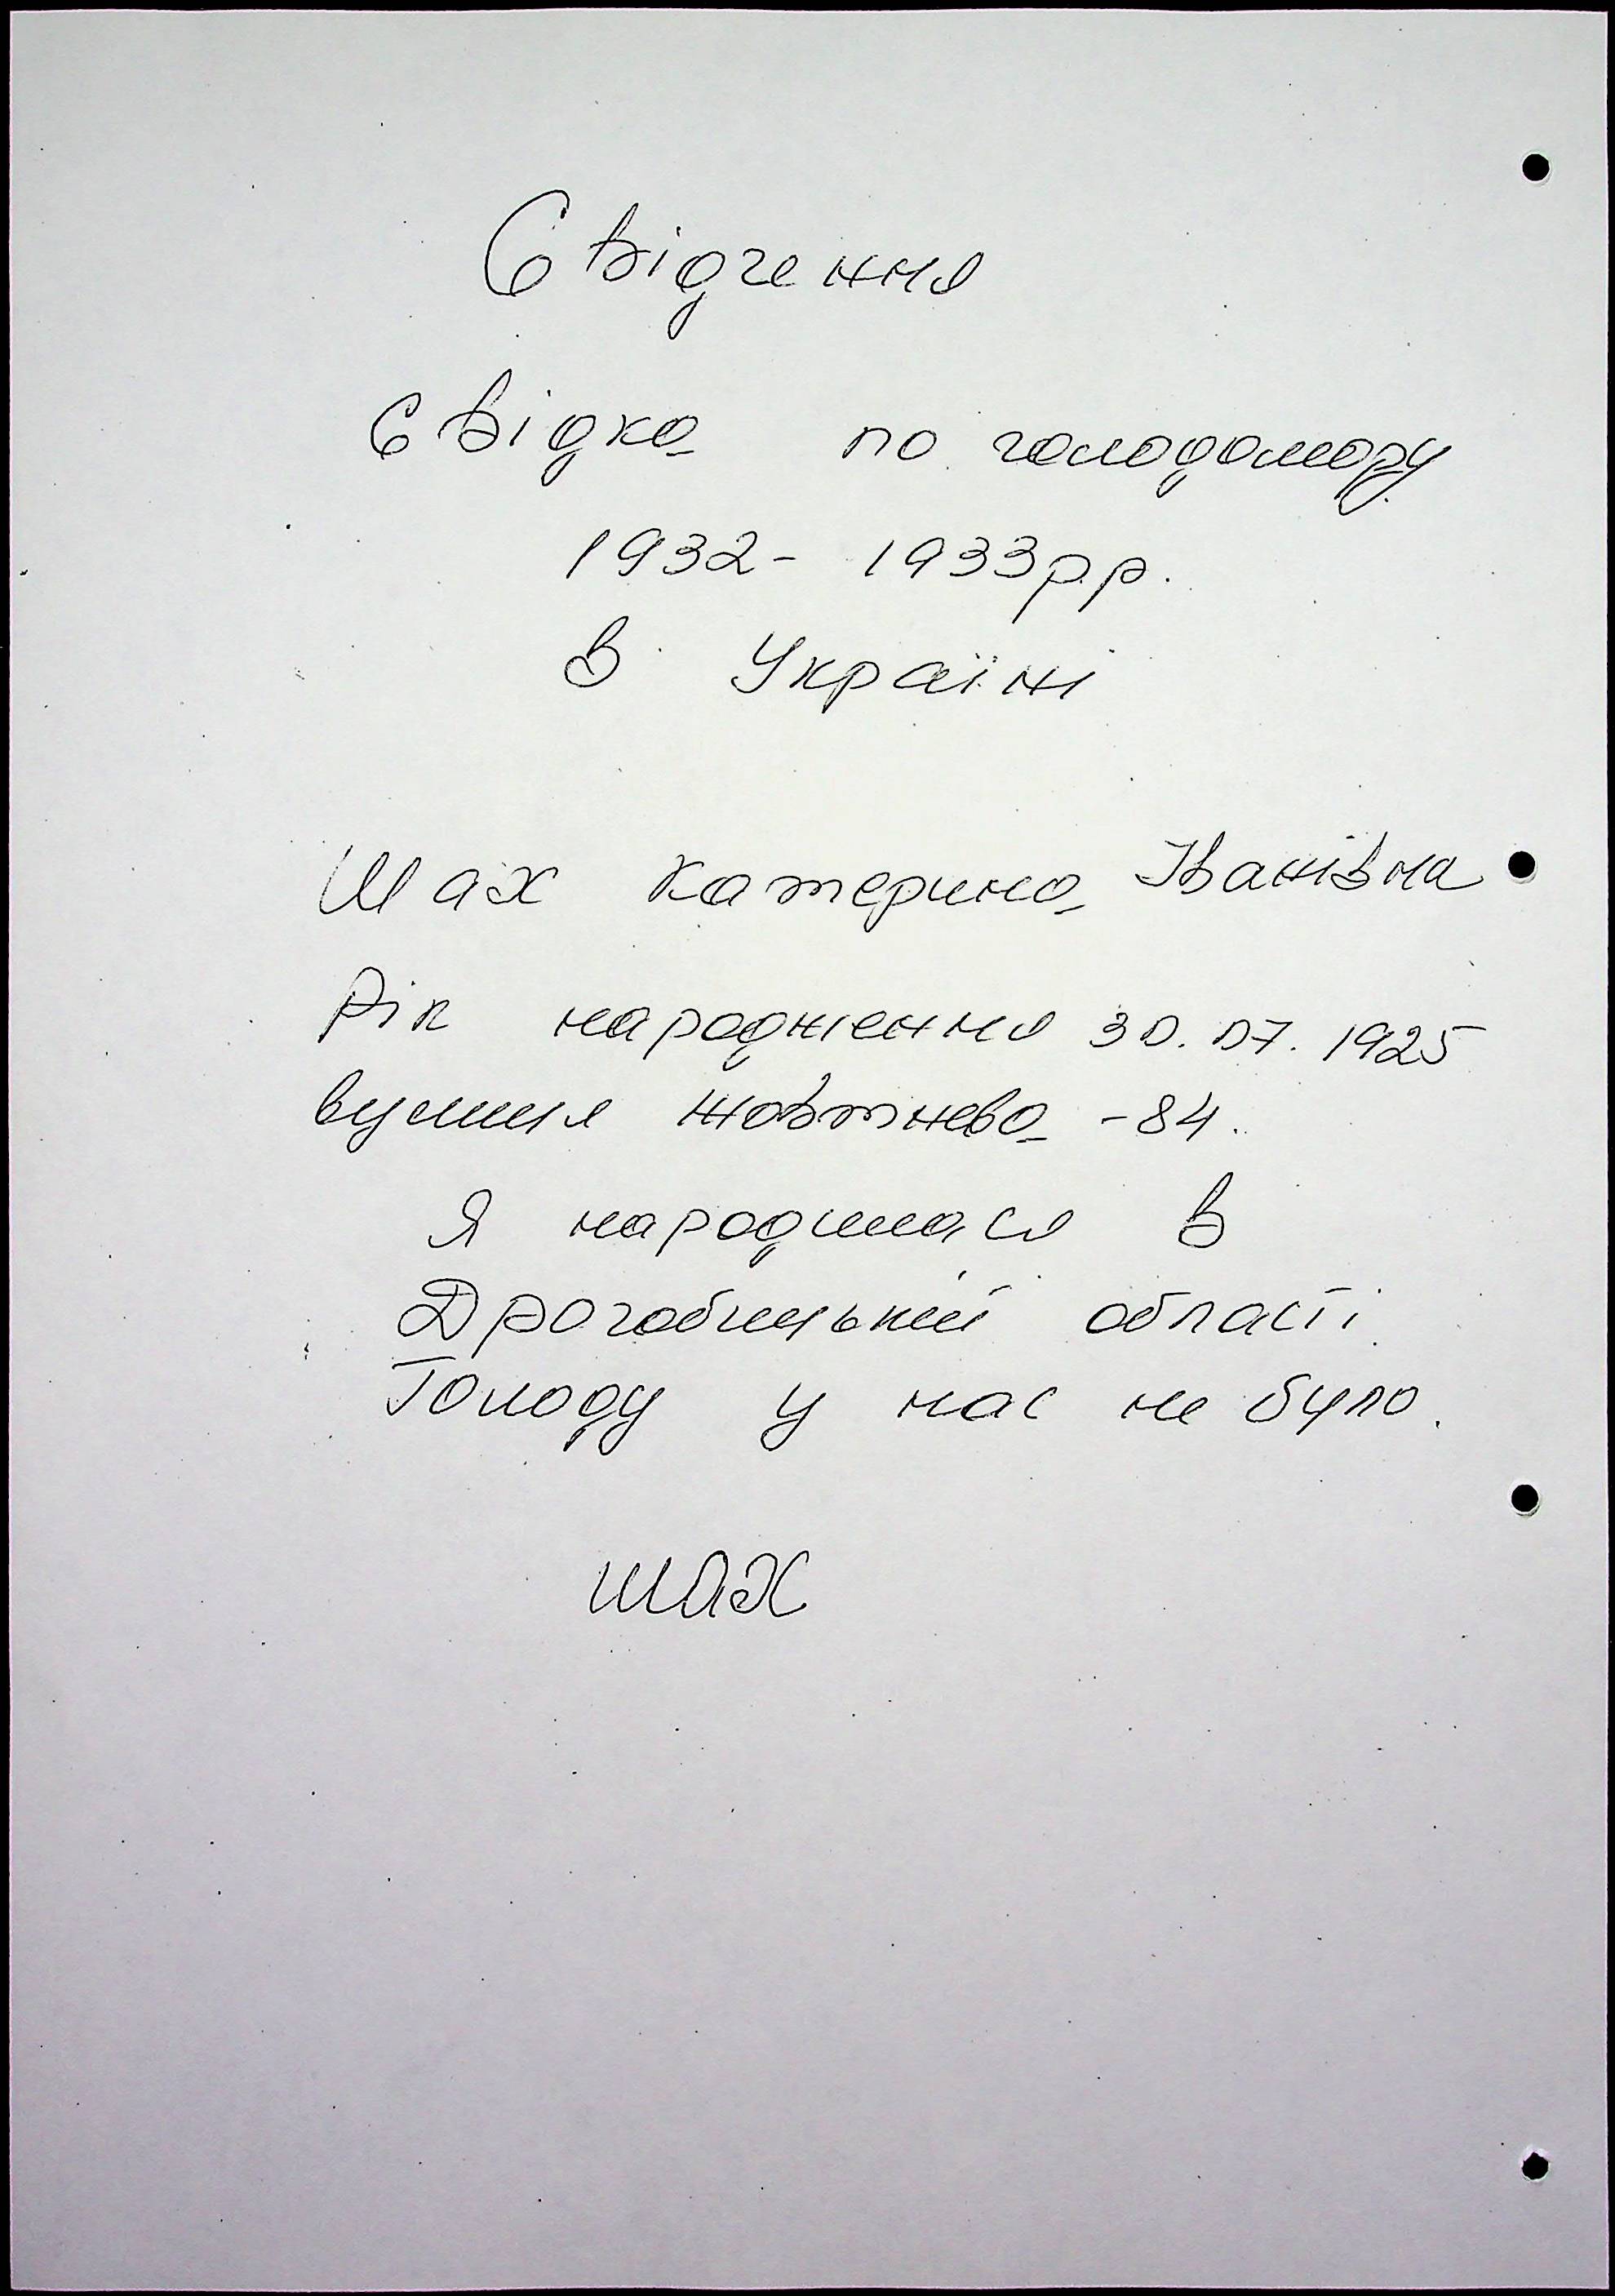 Свідчення
свідка по голодомору
1932- 1933р.р.
в Україні
Шах Катерина Іванівна
Рік народження 30.07.1925
вулиця Жовтнева -84.
Я народилася в
Дрогобицькій області.
Голоду у нас не було.
ШАХ